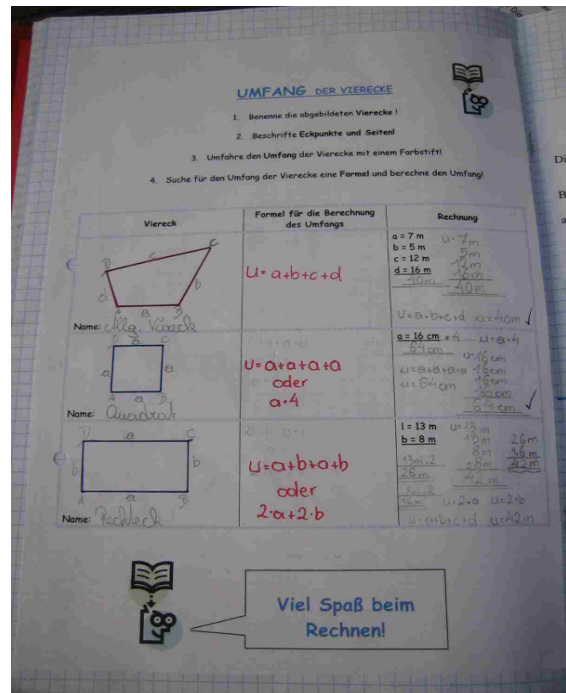 UMFANG DER VIERECKE
1. Benenne die abgebildeten Vierecke !
2. Beschrifte Eckpunkte und Seiten!
3. Umfahre den Umfang der Vierecke mit einem Farbstift!
4. Suche für den Umfang der Vierecke eine Formel und berechne den Umfang!
Viereck
Formel für die Berechnung
des Umfangs
Rechnung
D c C
d b
A a B
Name: Allg. Viereck
u=a+b+c+d
a = 7 m u=7m
b = 5 m 5m
c = 12 m 12m
d = 16 m 16m
40m 40m
u=a+b+c+d u=40m
D a C
a a
A a B
Name: Quadrat
u=a+a+a+a
oder
a·4
a = 16 cm ·4 u=a·4
64cm u=16cm
u=a+a+a+a 16cm
u=64cm 16cm
64cm
D a C
b b
A a B
Name: Rechteck
u=a+b+a+b
oder
2·a+2·b
l = 13 m u=13m
b = 8 m 13m 26m
8m 16m
13m·2 8m 42m
26m 42m
16m u=2·a u=2·b
u=a+b+c+d u=42m
Viel Spaß beim
Rechnen!